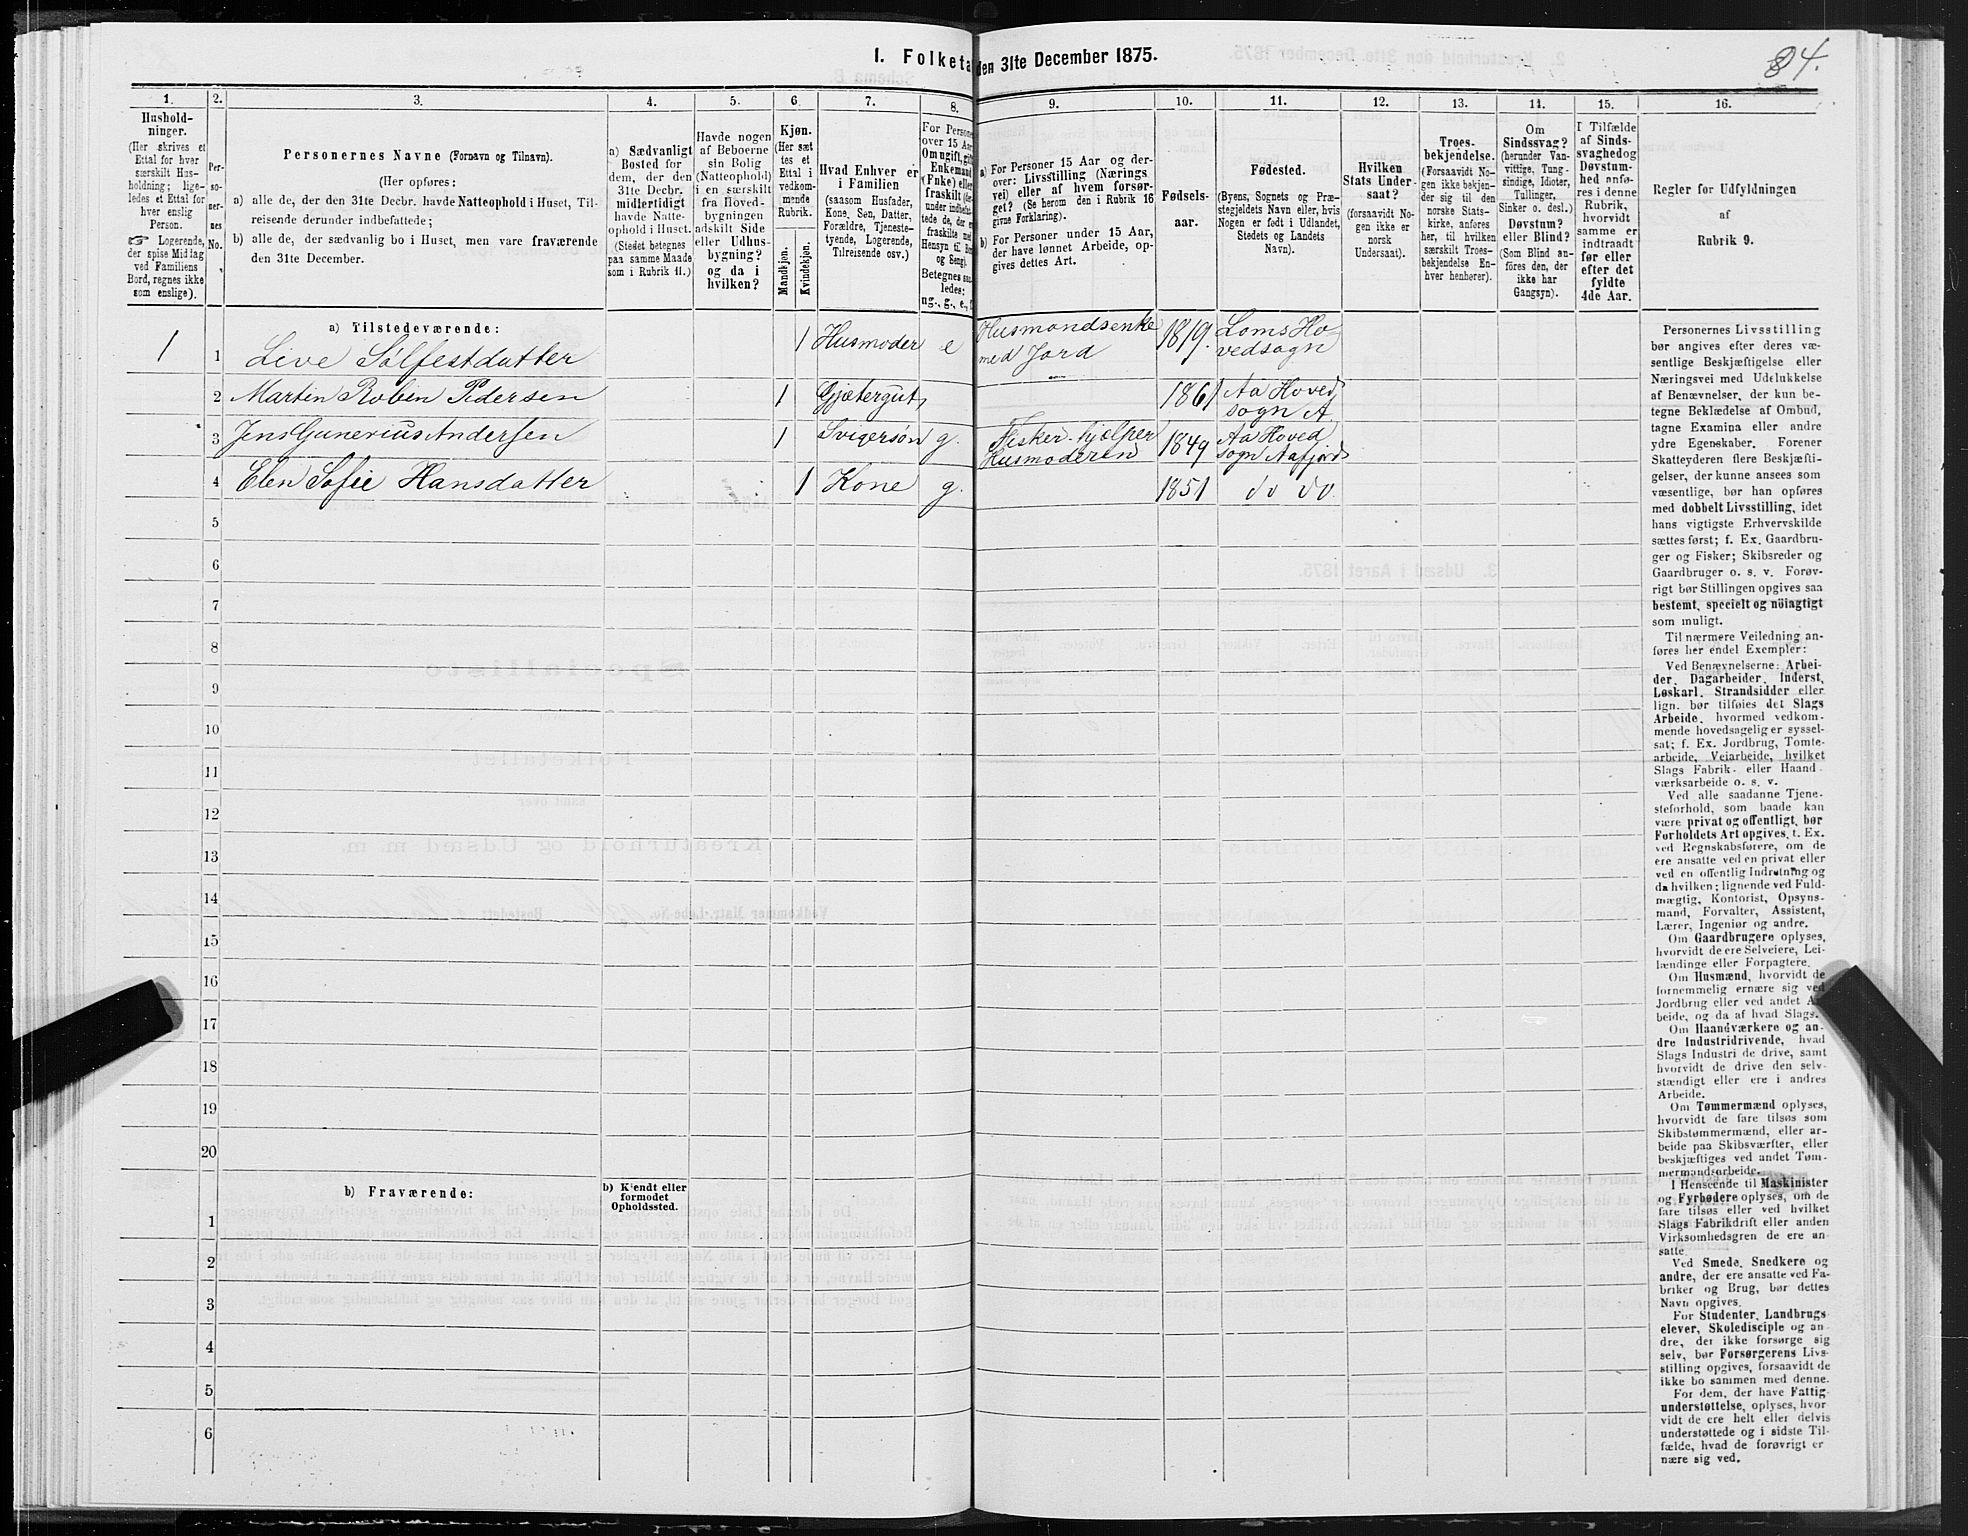 I. Folketa
den 31te December 1875.
84.
1.
2.
3.
4.
5.
6.
7.
8.
9.
10.
11.
12.
13.
14.
15.
16.
Hushold-
ninger.
(Her skrives et
Ettal for hver
særskilt Hus-
holdning; lige-
ledes et Ettal for
hver enslig
Person.
☞ Logerende,
der spise Middag
ved Familiens
Bord, regnes ikke
som enslige).
Per-
so-
ner-
nes
No.
Personernes Navne (Fornavn og Tilnavn).
(Her opføres:
a) alle de, der den 31te Decbr. havde Natteophold i Huset, Til-
reisende derunder indbefattede;
b) alle de, der sædvanlig bo i Huset, men vare fraværende
den 31te December.
a) Sædvanligt
Bosted for
dem, der den
31te Decbr.
midlertidigt
havde Natte-
ophold i Huset.
(Stedet betegnes
paa samme Maade
som i Rubrik 11.)
Havde nogen
af Beboerne
sin Bolig
(Natteophold)
i en særskilt
fra Hoved-
bygningen
adskilt Side
eller Udhus-
bygning?
og da i
hvilken?
Kjøn.
(Her sæt
tes et
Ettal i
vedkom-
mende
Rubrik.
Mandkjøn.
Kvindekjøn.
Hvad Enhver er
i Familien
(saasom Husfader,
Kone, Søn, Datter,
Forældre, Tjeneste-
tyende, Logerende,
Tilreisende osv.)
For Persone
over 15 Aar
Om ugift, gift
Enkemand
(Enke) eller
fraskilt (der-
under indbefat-
tede de, der er
fraskilte med
Hensyn til Bor
og Seng).
Betegnes saa-
ledes:
ug., g., e.,
a) For Personer 15 Aar og der-
over: Livsstilling (Nærings
vei) eller af hvem forsør-
get? (Se herom den i Rubrik 16
givne Forklaring).
b) For Personer under 15 Aar,
der have lønnet Arbeide, op-
gives dettes Art.
Fødsels-
aar.
Fødested.
(Byens, Sognets og Præ-
stegjeldets Navn eller, hvis
Nogen er født i Udlandet,
Stedets og Landets
Navn).
Hvilken
Stats Under-
saat?
(forsaavidt No-
gen ikke er
norsk
Undersaat).
Troes-
bekjendelse.
(Forsaavidt No-
gen ikke bekjen-
der sig til den
norske Stats-
kirke, anføres
her, til hvilken
særskilt Troes-
bekjendelse En-
hver henhører).
Om
Sindssvag?
(herunder Van-
vittige, Tung-
sindige, Idioter,
Tullinger,
Sinker o. desl.)
Døvstum?
eller Blind?
(Som Blind an-
føres den, der
ikke har
Gangsyn).
I Tilfælde
af Sinds-
svaghed og
Døvstum-
hed anfø-
res i denne
Rubrik,
hvorvidt
samme er
indtraadt
før eller
efter det
fyldte
4de Aar.
Regler for Udfyldningen
af
Rubrik 9.
a) Tilstedeværende:
1 1 Live Sølfestdatter 1 Husmoder e Husmandsenke med Jord 1819. Loms Hovedsogn
2 Martin Robin Pedersen 1 Gjætergut, 1861 Aa Hovedsogn A
3 Jens Gunerius Andersen 1 Svigersøn g. Fisker-hjelper Husmoderen 1849 Aa Hoved sogn Aafjord
4 Elen Sofie Hansdatter 1 Kone g. 1851 do do.
5
6
7
8
9
10
11
12
13
14
15
16
17
18
19
20
b) Fraværende:
b) Kjendt eller
formodet
Opholdssted.
1
2
3
4
5
6
Personernes Livsstilling
bør angives efter deres væ-
sentlige Beskjæftigelse eller
Næringsvei med Udelukkelse
af Benævnelser, der kun be-
tegne Beklædelse af Ombud,
tagne Examina eller andre
ydre Egenskaber. Forener
Skatteyderen flere Beskjæfti-
gelser, der kunne ansees som
væsentlige, bør han opføres
med dobbelt Livsstilling, idet
hans vigtigste Erhvervskilde
sættes først; f. Ex. Gaardbru-
ger og Fisker; Skibsreder og
Gaardbruger o. s. v. Forøv-
rigt bør Stillingen opgives saa
bestemt, specielt og nöiagtigt
som muligt.
Til nærmere Veiledning an-
føres her endel Exempler:
Ved Benævnelserne: Arbei-
der, Dagarbeider, Inderst,
Løskarl, Strandsidder eller
lign. bør tilføies det Slags
Arbeide, hvormed vedkom-
mende hovedsagelig er syssel-
sat; f. Ex. Jordbrug, Tomte-
arbeide, Veiarbeide, hvilket
Slags Fabrik- eller Haand-
værksarbeide o. s. v.
Ved alle saadanne Tjene-
steforhold, som baade kan
være privat og offentligt, bør
Forholdets Art opgives, t. Ex.
ved Regnskabsførere, om de
ere ansatte ved en privat eller
ved en offentlig Indretning og
da hvilken; lignende ved Fuld-
mægtig, Kontorist, Opsyns-
mand, Forvalter, Assistent,
Lærer, Ingeniør og andre.
Om Gaardbrugere oplyses,
hvorvidt de ere Selveiere, Lei-
lændinge eller Forpagtere.
Om Husmænd, hvorvidt de
fornemmelig ernære sig ved
Jordbrug eller ved andet Ar-
beide, og da af hvad Slags.
Om Haandværkere og an-
dre Industridrivende, hvad
Slags Industri de drive, samt
hvorvidt de drive den selv-
stændigt eller ere i andres
Arbeide.
Om Tømmermænd oplyses,
hvorvidt de fare tilsøs som
Skibstømmermænd, eller ar-
beide paa Skibsværfter, eller
beskjæftiges ved andet Tøm-
mermandsarbeide.
I Henseende til Maskinister
og Fyrbødere oplyses, om de
fare tilsøs eller ved hvilket
Slags Fabrikdrift eller anden
Virksomhedsgren de ere an-
satte.
Ved Smede, Snedkere og
andre, der ere ansatte ved Fa-
briker og Brug, bør dettes
Navn opgives.
For Studenter, Landbrugs-
elever, Skoledisciple og an-
dre, der ikke forsørge sig
selv, bør Forsørgerens Livs-
stilling opgives, forsaavidt de
ikke bo sammen med denne.
For dem, der have Fattig-
understøttelse, oplyses, hvor
vidt de ere helt eller delvis
understøttede og i sidste Til-
fælde, hvad de forøvrigt er
nære sig ved.